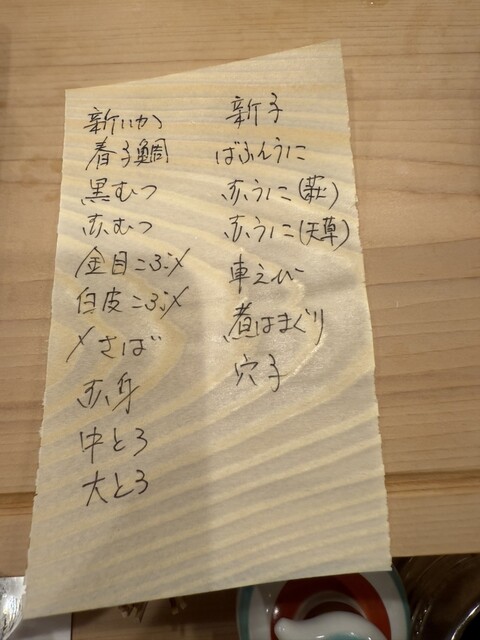 新いか
春子鯛
黒むつ
赤むつ
金目こぶ〆
白皮こぶ〆
〆さば
赤身
中とろ
大とろ
新子
ばふんうに
赤うに(萩)
赤うに(天草)
車えび
煮はまぐり
穴子